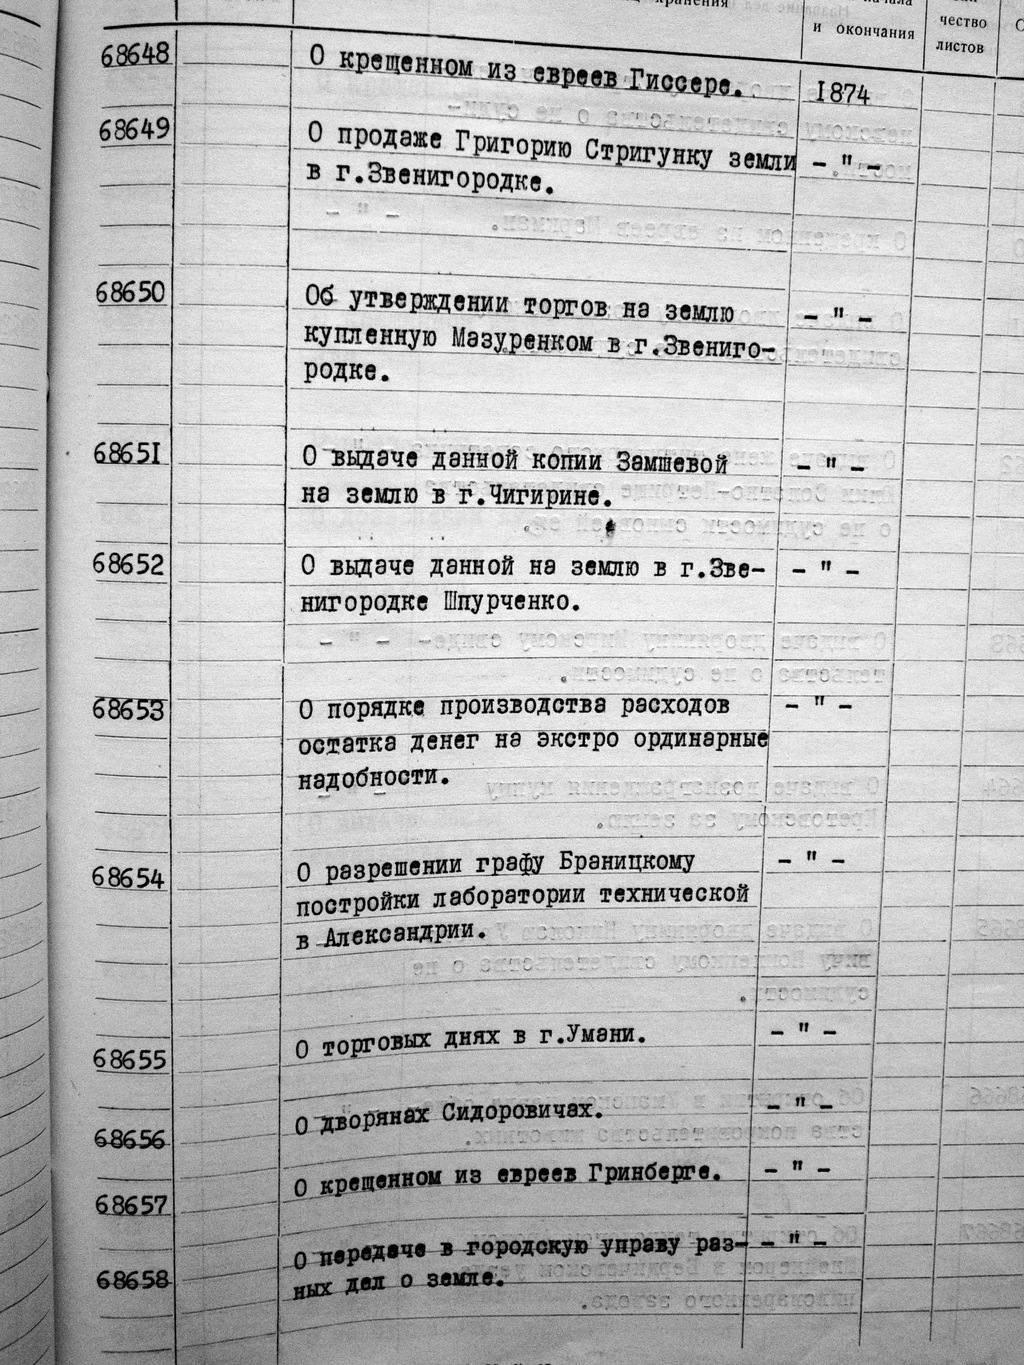 хранения
начала
и окончания
чество
листов
68648 О крещенном из евреев Гиссере. 1874
68649 О продаже Григорию Стригунку земли - " -
в г.Звенигородке.
68650 Об утверждении торгов на землю - " -
купленную Мазуренком в г.Звениго-
родке.
68651 О выдаче данной копии Замшевой - " -
на землю в г.Чигирине.
68652 О выдаче данной на землю в г.Зве- - " -
нигородке Шпурченко.
68653 О порядке производства расходов - " -
остатка денег на экстро ординарные
надобности.
68654 О разрешении графу Браницкому - " -
постройки лаборатории технической
в Александрии.
68655 О торговых днях в г.Умани. - " -
68656 О дворянах Сидоровичах. - " -
68657 О крещенном из евреев Гринберге. - " -
68658 О передаче в городскую управу раз- - " -
ных дел о земле.